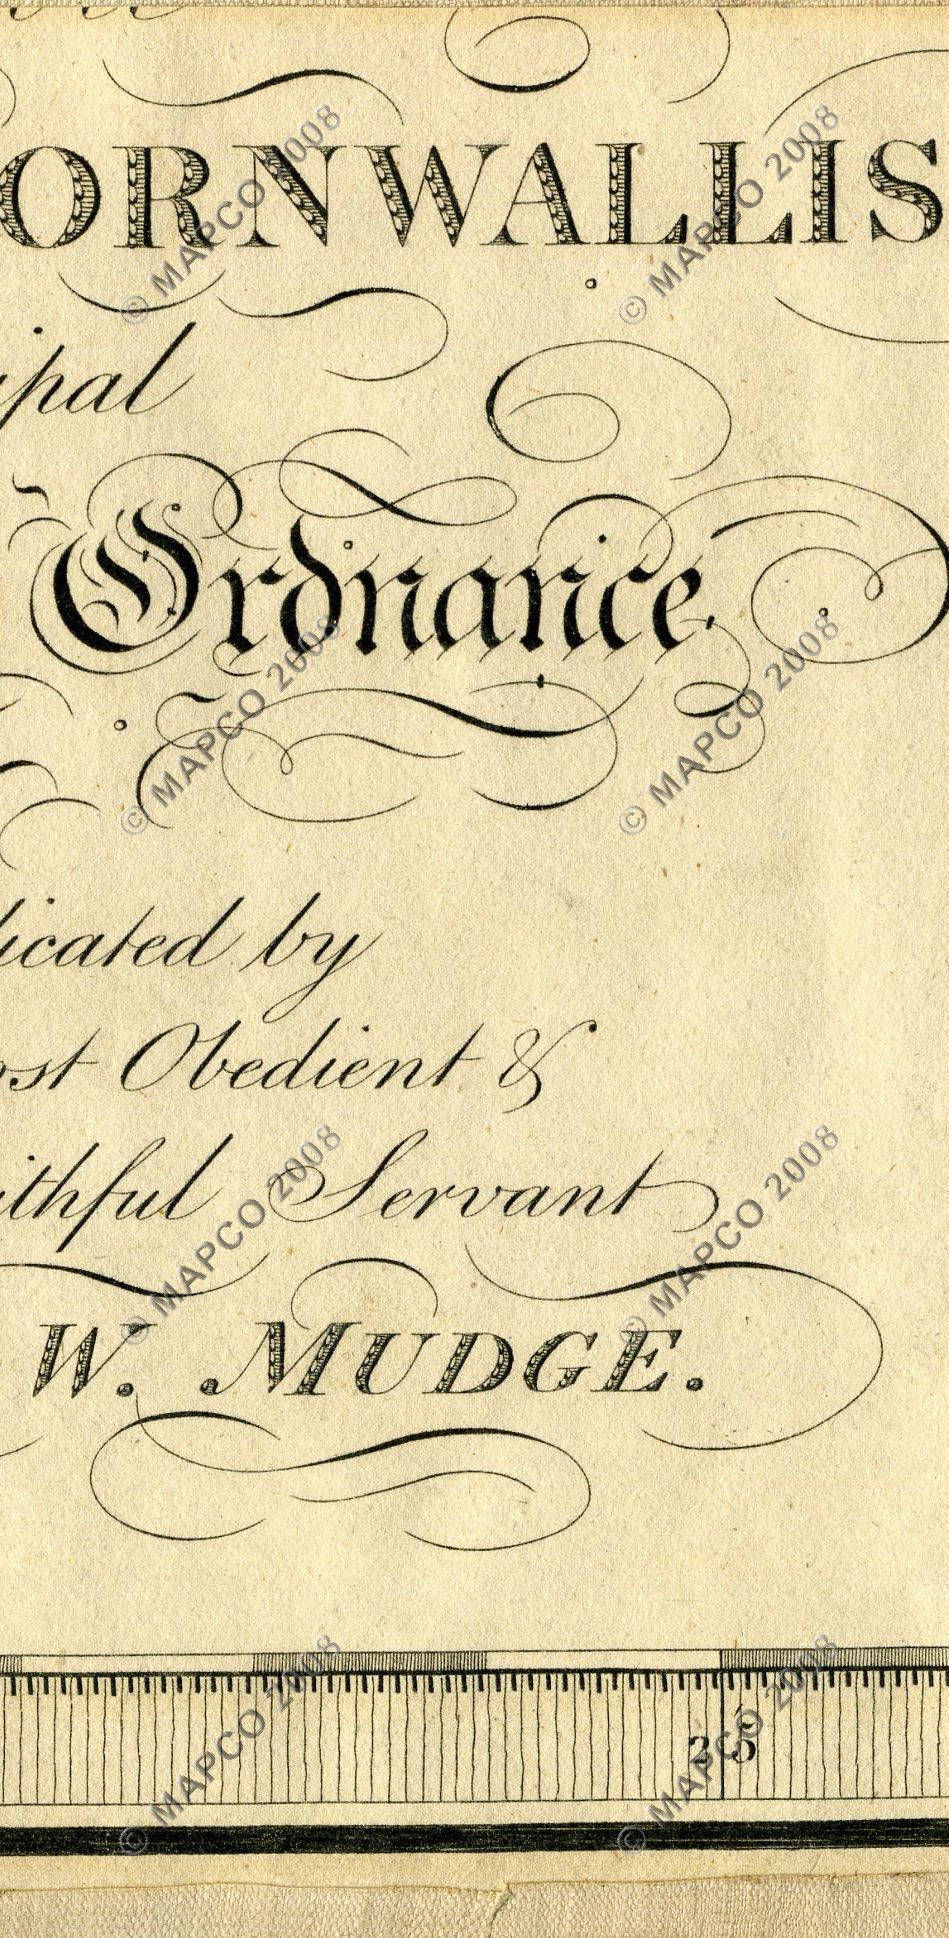 ORNWALLIS
ipal
Ordnance
dicated by
ost Obedient &
ithful Servant
W. MUDGE.
25
© MAPCO 2008
© MAPCO 2008
© MAPCO 2008
© MAPCO 2008
© MAPCO 2008
© MAPCO 2008
© MAPCO 2008
© MAPCO 2008